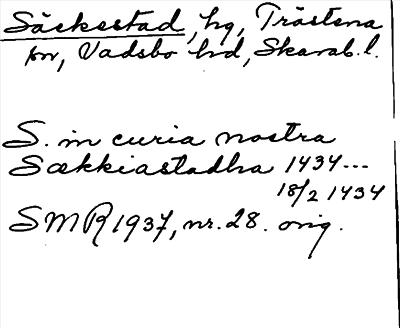 Säckestad, hg, Trästena
sn, Vadsbo hd, Skarab. l.
S. in curia nostra
Sækkiastadha 1434...
18/2 1434
SMR 1937, nr. 28. orig.